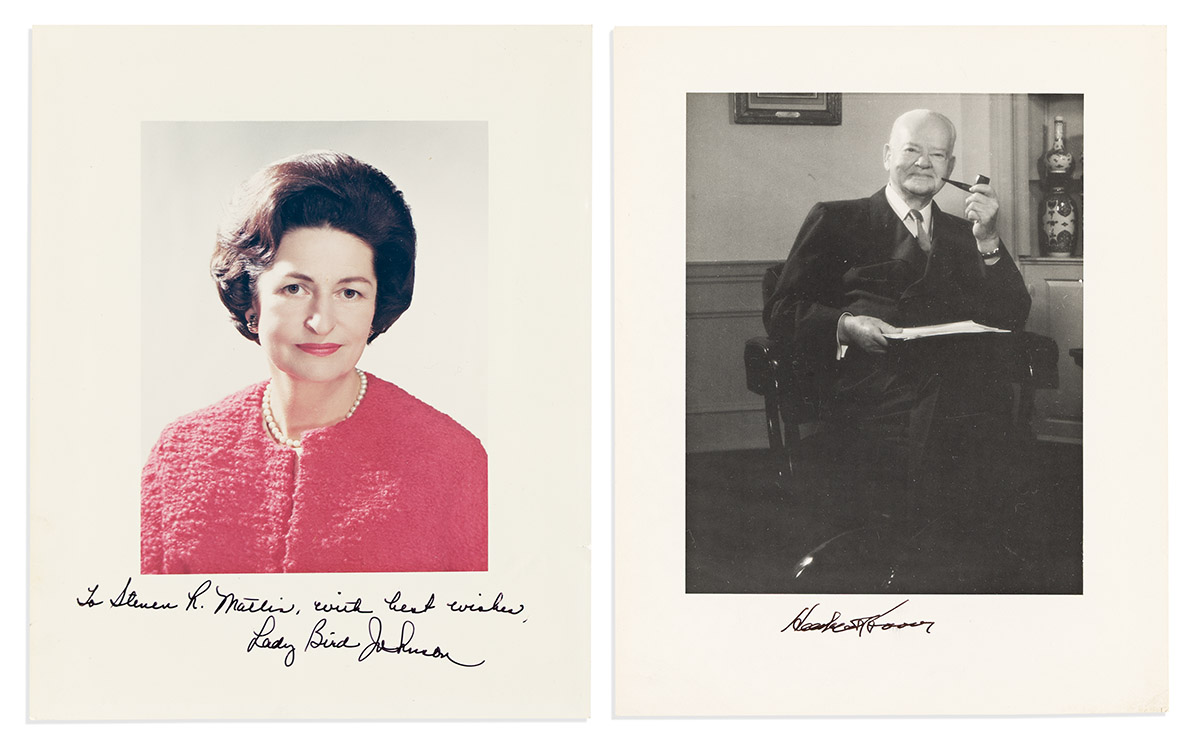 To Steven R. Mattis, with best wishes,
Lady Bird Johnson
Herbert Hoover